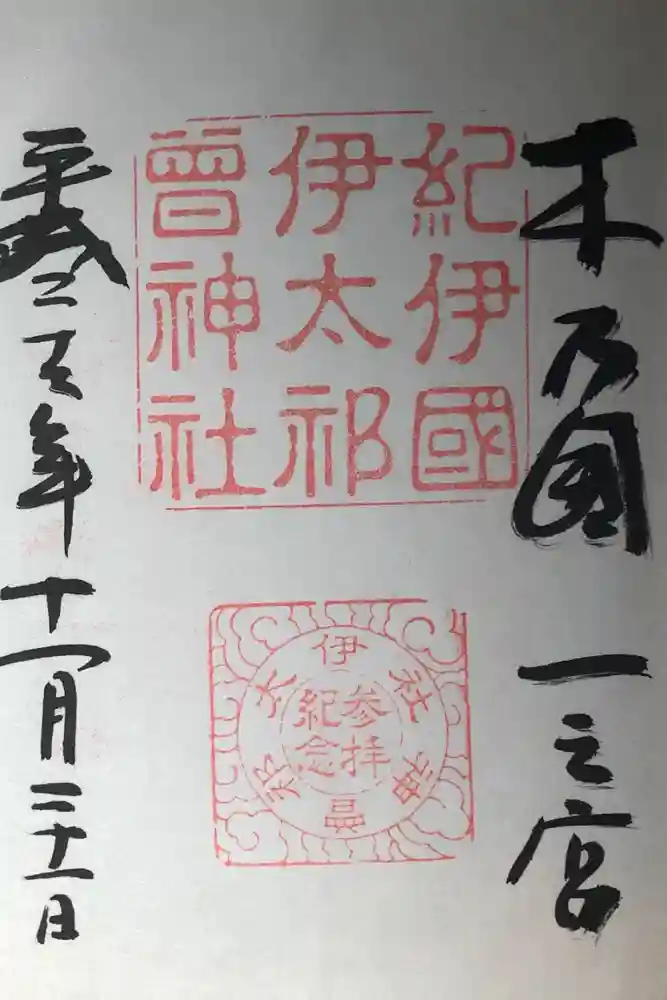 木乃國 一之宮
紀伊國
伊太祁
曾神社
伊太祁曽神社
参拝
紀念
平成二十六年十一月二十一日